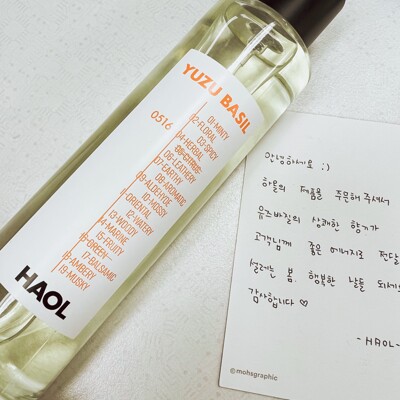 YUZU BASIL
0516
01-MINTY
02-FLORAL
03-SPICY
04-HERBAL
05-CITRUS
06-LEATHERY
07-EARTHY
08-AROMATIC
09-ALDEHYDE
10-MOSSY
11-ORIENTAL
12-WATERY
13-WOODY
14-MARINE
15-FRUITY
16-GREEN
17-BALSAMIC
18-AMBERY
19-MUSKY
HAOL
안녕하세요 :)
하올의 제품을 주문해 주셔서
유즈바질의 상쾌한 향기가
고객님께 좋은 에너지로 전달
설레는 봄, 행복한 날들 되세요
감사합니다 ♡
-HAOL-
©mohsgraphic